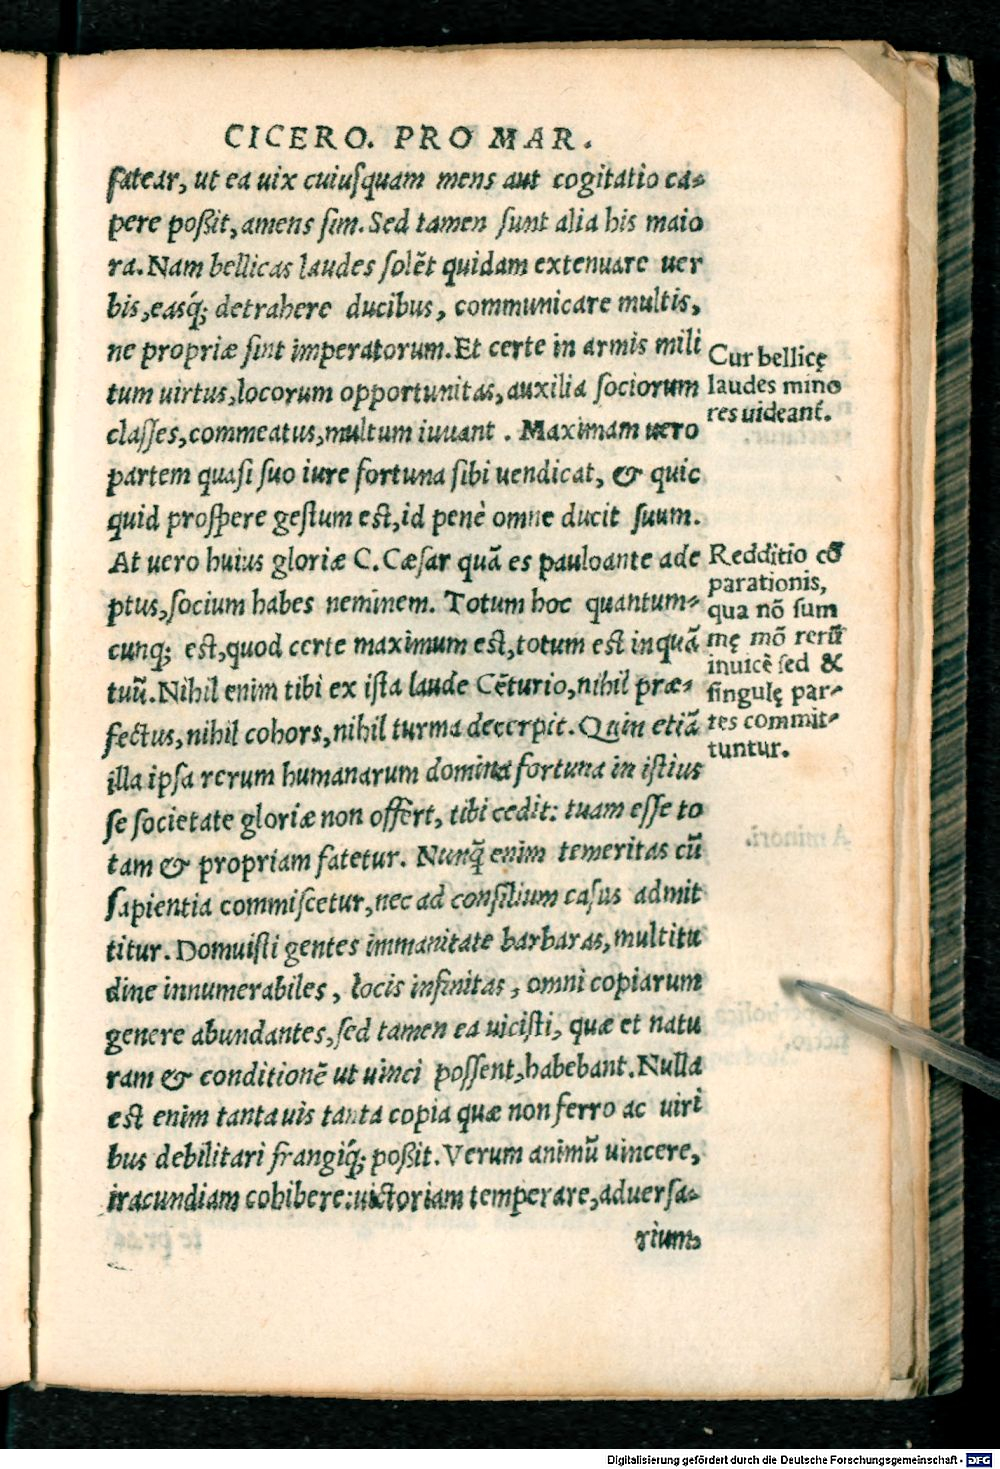 CICERO. PRO MAR.
fatear, ut ea uix cuiusquam mens aut cogitatio ca-
pere poßit, amens sim. Sed tamen sunt alia his maio
ra. Nam bellicas laudes solẽt quidam extenuare uer
bis, easq́; detrahere ducibus, communicare multis,
ne propriæ sint imperatorum. Et certe in armis mili
tum uirtus, locorum opportunitas, auxilia sociorum
classes, commeatus, multum iuuant. Maximam uero
partem quasi suo iure fortuna sibi uendicat, & quic
quid prospere gestum est, id penè omne ducit suum.
At uero huius gloriæ C. Cæsar quã es pauloante ade
ptus, socium habes neminem. Totum hoc quantum-
cunq; est, quod certe maximum est, totum est inquã
tuũ. Nihil enim tibi ex ista laude Cẽturio, nihil præ-
fectus, nihil cohors, nihil turma decerpit. Quin etiã
illa ipsa rerum humanarum domina fortuna in istius
se societate gloriæ non offert, tibi cedit: tuam esse to
tam & propriam fatetur. Nunq̃ enim temeritas cũ
sapientia commiscetur, nec ad consilium casus admit
titur. Domuisti gentes immanitate barbaras, multitu
dine innumerabiles, locis infinitas, omni copiarum
genere abundantes, sed tamen ea uicisti, quæ et natu
ram & conditionẽ ut uinci possent, habebant. Nulla
est enim tanta uis tanta copia quæ non ferro ac uiri
bus debilitari frangiq́; poßit. Verum animũ uincere,
iracundiam cohibere: uictoriam temperare, aduersa-
rium
Cur bellicę
laudes mino
res uideant́.
Redditio cõ
parationis,
qua nõ sum
mę mõ rerũ
inuicẽ sed &
singulę par-
tes commit-
tuntur.
Digitalisierung gefördert durch die Deutsche Forschungsgemeinschaft - DFG